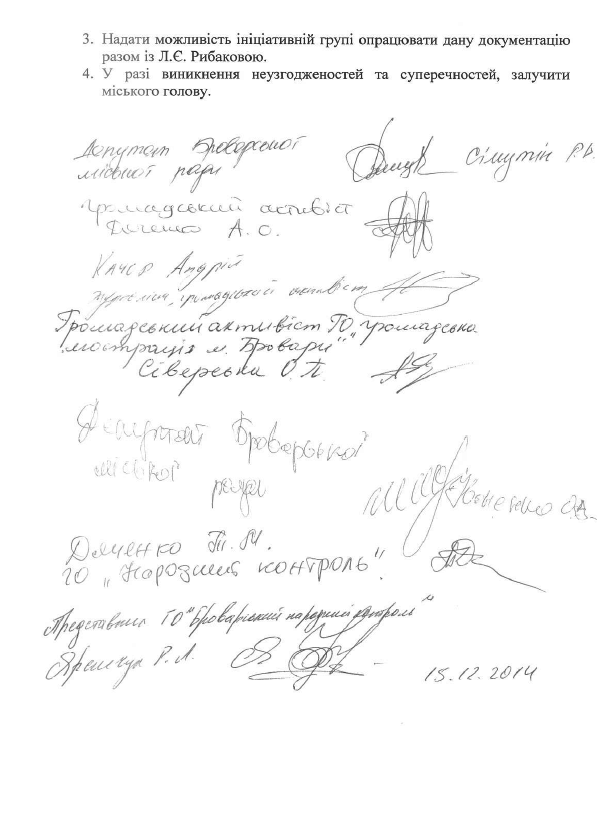 3. Надати можливість ініціативній групі опрацювати дану документацію
разом із Л.Є. Рибаковою.
4. У разі виникнення неузгодженостей та суперечностей, залучити
міського голову.
Депутат Броварської
міської ради Сімутін Р.В.
Громадський активіст
А. О.
Качор Андрій
журналіст, громадський активіст
Громадський активіст ГО „Громадська
люстрація м. Бровари"
Сіверська О.П.
Депутат Броварської
міської
ради
Дяченко Т. М.
ГО „Народний контроль"
Представник ГО "Броварський народний контроль"
Яремчук Р. Л. 15.12.2014